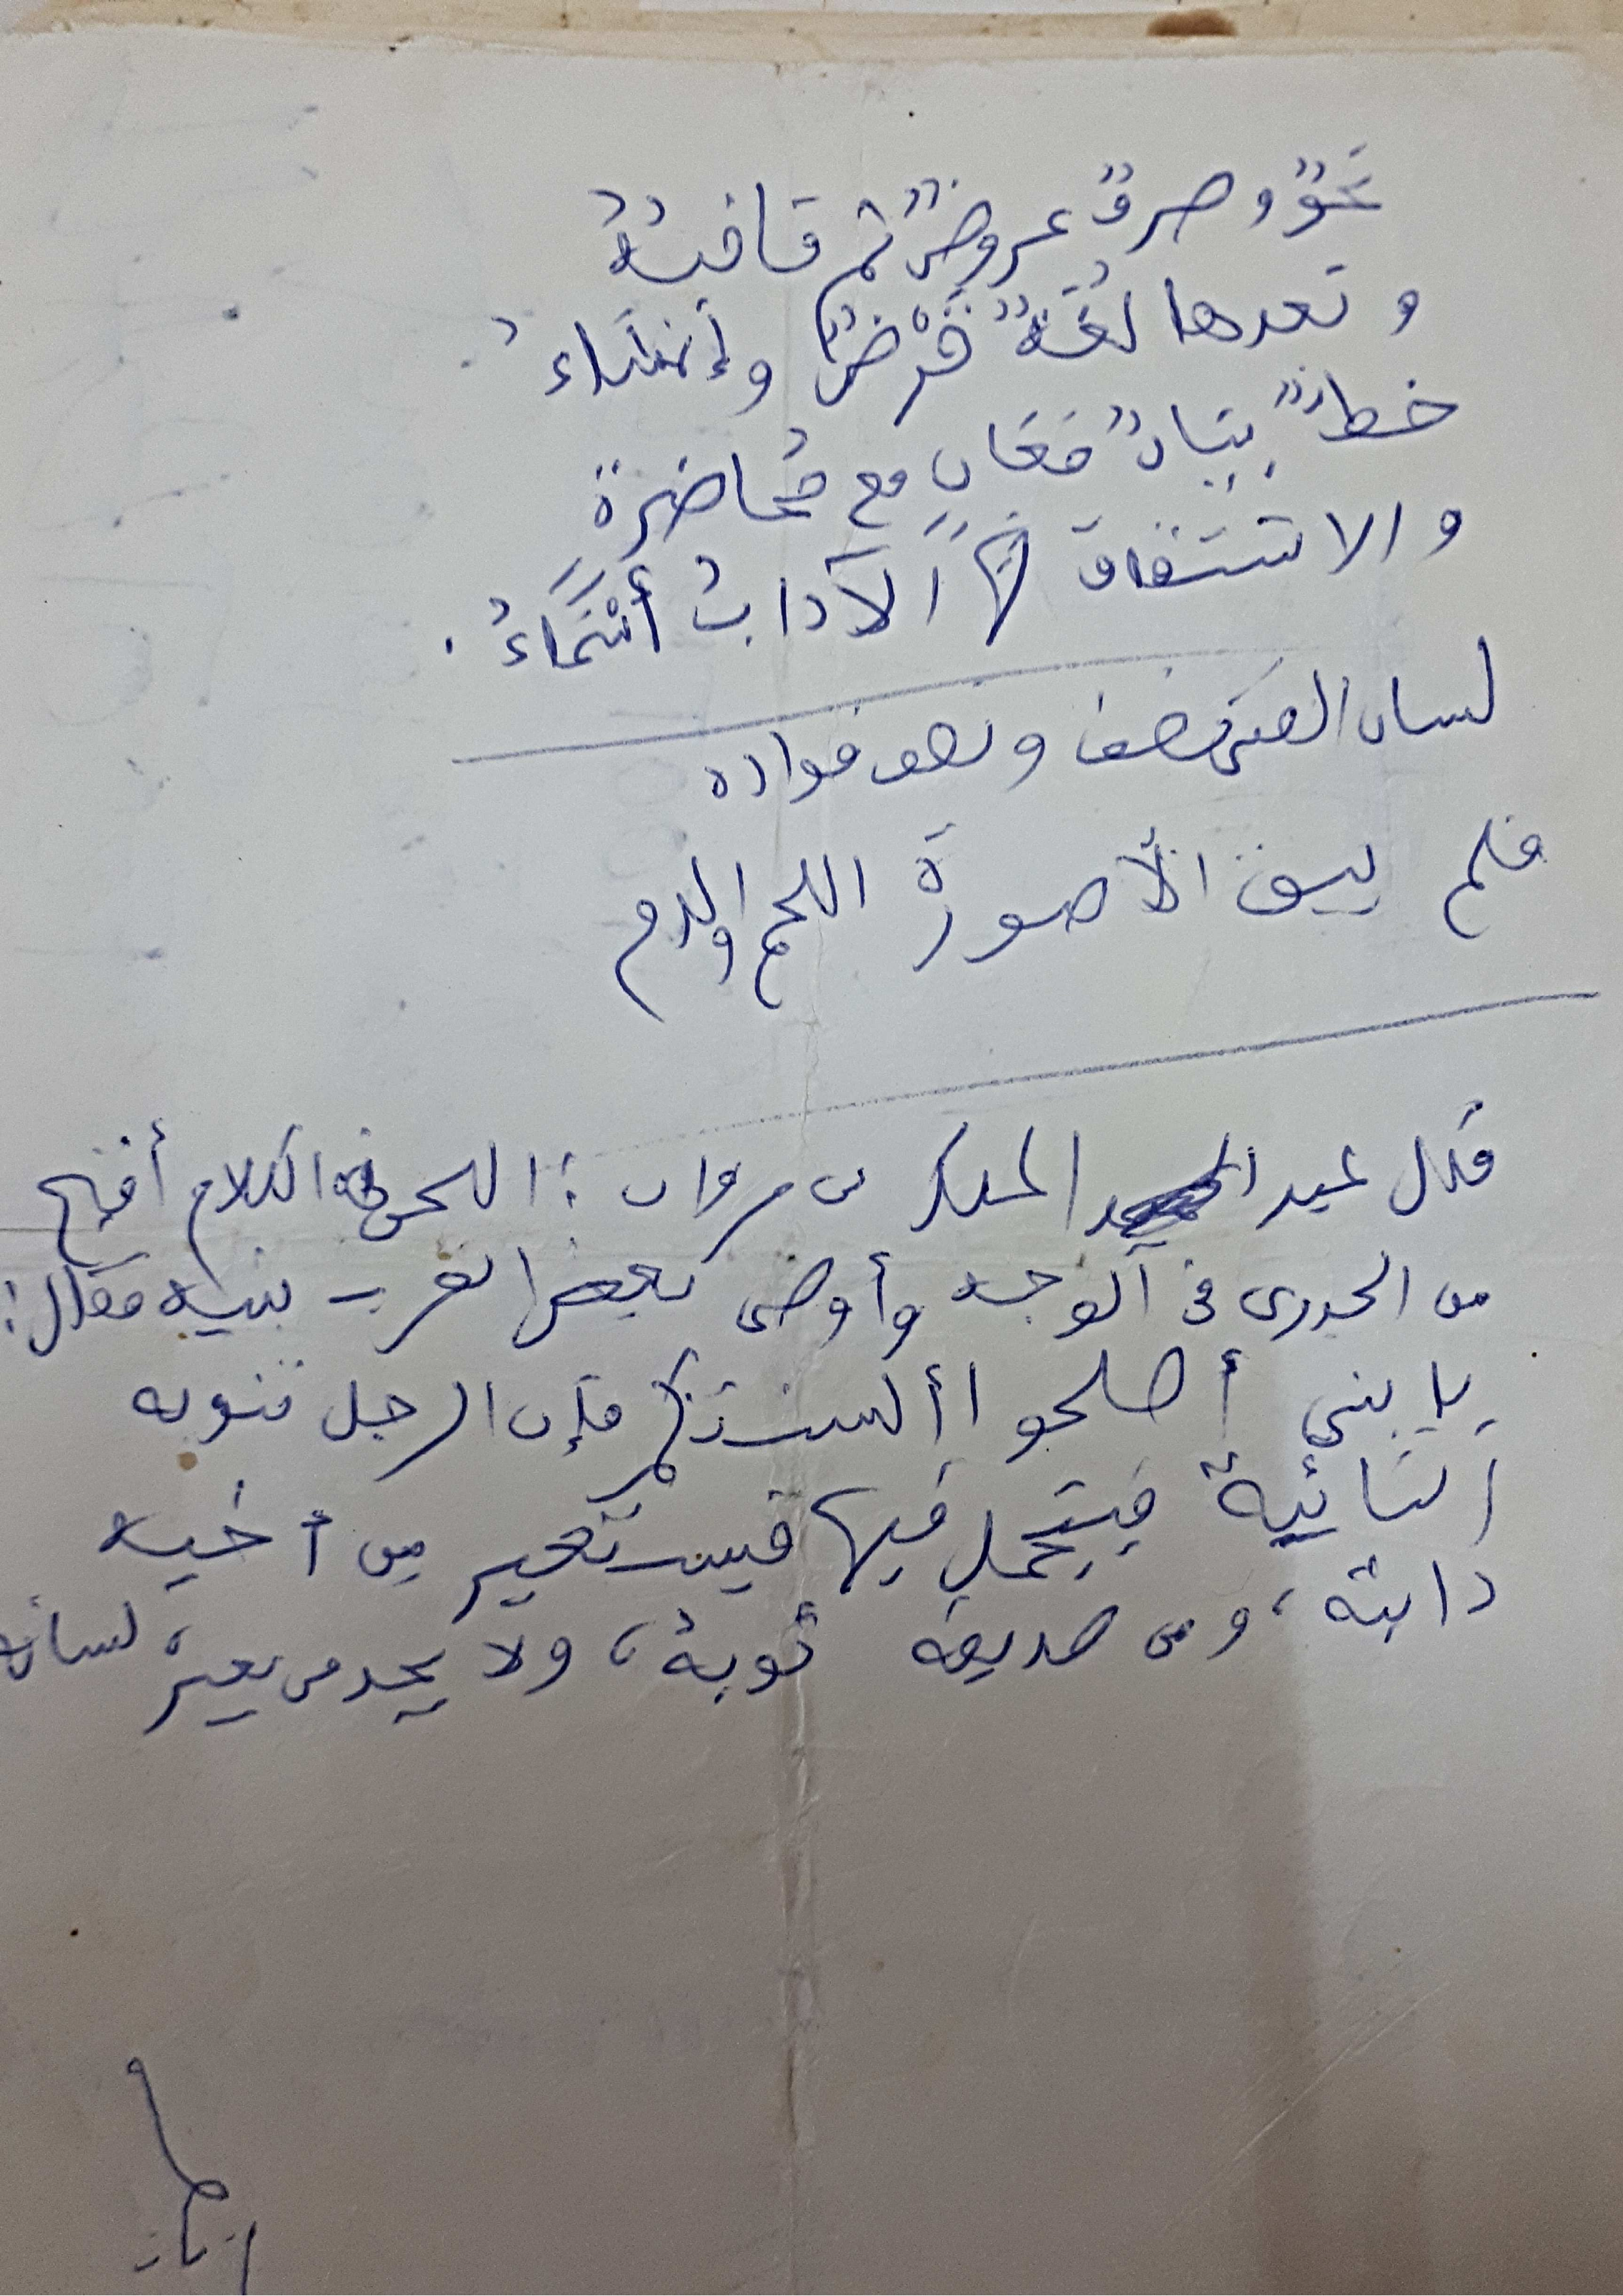 نحوٌ وصرفٌ عروضٌ ثم قافيةٌ
وبعدها لغةٌ قَرْضٌ وإنشاءُ
خطٌ بيانٌ مَعَانٍ مع مُحاضرة
والاشتقاق لها الآدابُ أَسْمَاءُ .
لسان الفتى نصف ونصف فؤاده
فلم يبق إلا صورةَ اللحم والدم
قال عبد الملك بن مروان : اللحن في الكلام أقبح
من الجدرى فى الوجه وأوصى بعض العرب بنيه فقال :
يا بني أصلحوا ألسنتكم فإن الرجل تنوبه
النائبة فيتجمل فيها فيستعير من أخيه
دابته ، ومن صديقه ثوبه ، ولا يجد من يعيره لسانه